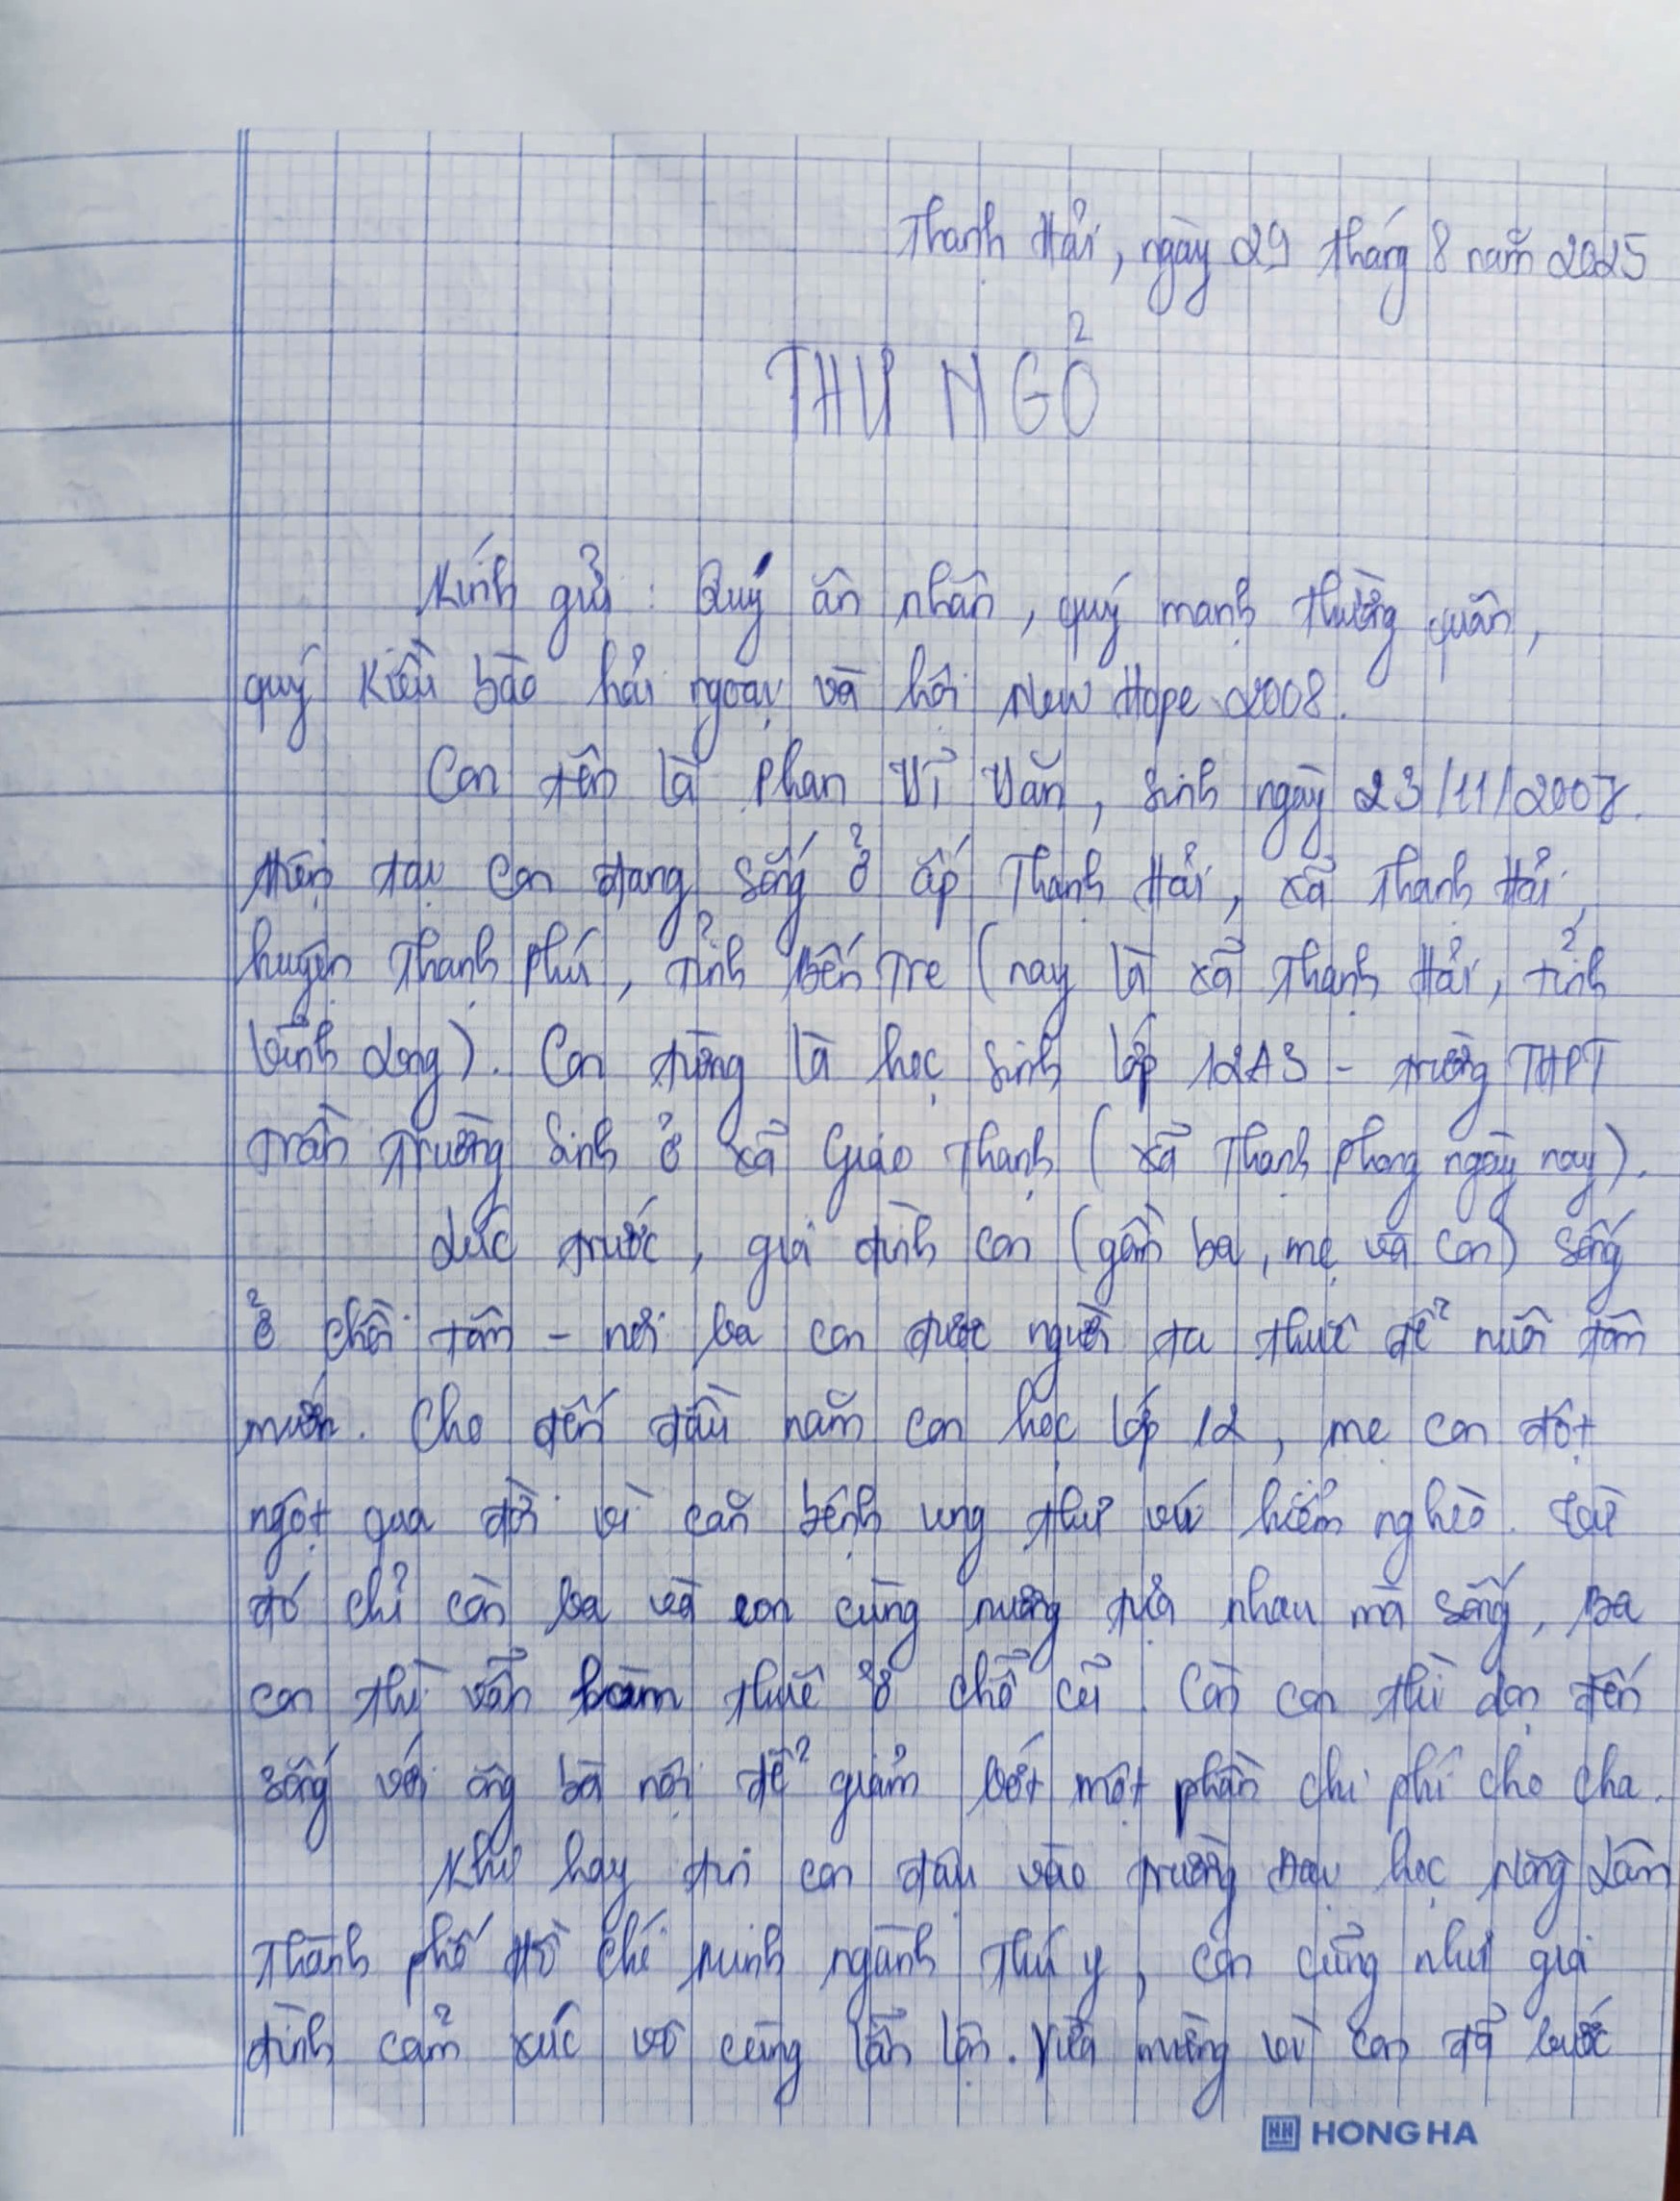 Thạnh Hải, ngày 29 tháng 8 năm 2025
THƯ NGỎ
Kính gửi : Quý ân nhân, quý mạnh thường quân,
quý kiều bào hải ngoại và hội New Hope 2008.
Con tên là Phan Vĩ Văn, sinh ngày 23/11/2007.
Hiện tại con đang sống ở ấp Thạnh Hải, xã Thạnh Hải,
huyện Thạnh Phú, tỉnh Bến Tre (nay là xã Thạnh Hải, tỉnh
Vĩnh Long). Con từng là học sinh lớp 12A3 - trường THPT
Trần Trường Sinh ở xã Giao Thạnh (xã Thạnh Phong ngày nay).
Lúc trước, gia đình con (gồm ba, mẹ và con) sống
ở chòi tôm - nơi ba con được người ta thuê để nuôi tôm
mướn. Cho đến đầu năm con học lớp 12, mẹ con đột
ngột qua đời vì căn bệnh ung thư vú hiểm nghèo. Từ
đó chỉ còn ba và con cùng nương tựa nhau mà sống, Ba
con thì vẫn làm thuê ở chỗ cũ. Còn con thì dọn đến
sống với ông bà nội để giảm bớt một phần chi phí cho cha.
Khi hay tin con đậu vào trường Đại học Nông Lâm
Thành phố Hồ Chí Minh ngành Thú y, con cũng như gia
đình cảm xúc vô cùng lẫn lộn. Vừa mừng vì con đã bước
HONG HA